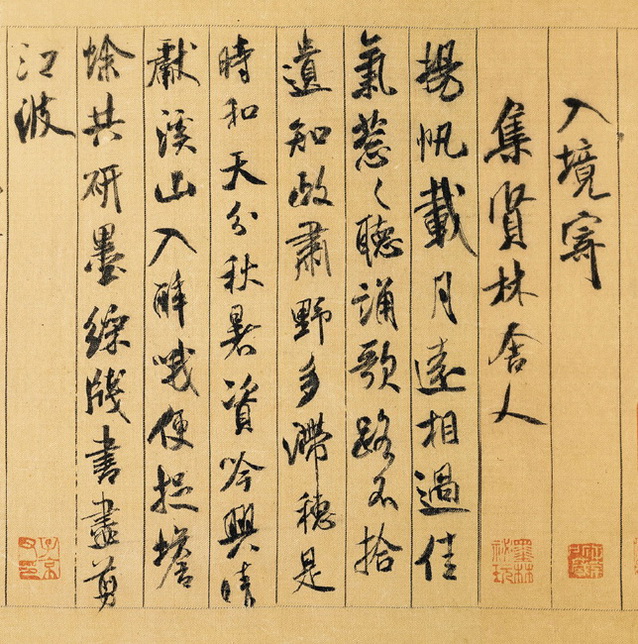 入境寄
集賢林舍人
墨林祕玩
揚帆載月遠相過佳
氣葱〻聽誦歌路不拾
遺知政肅野多滯穗是
時和天分秋暑資吟興晴
獻溪山入醉哦便捉蟾
蜍共研墨綵牋書盡剪
江波
子京父印